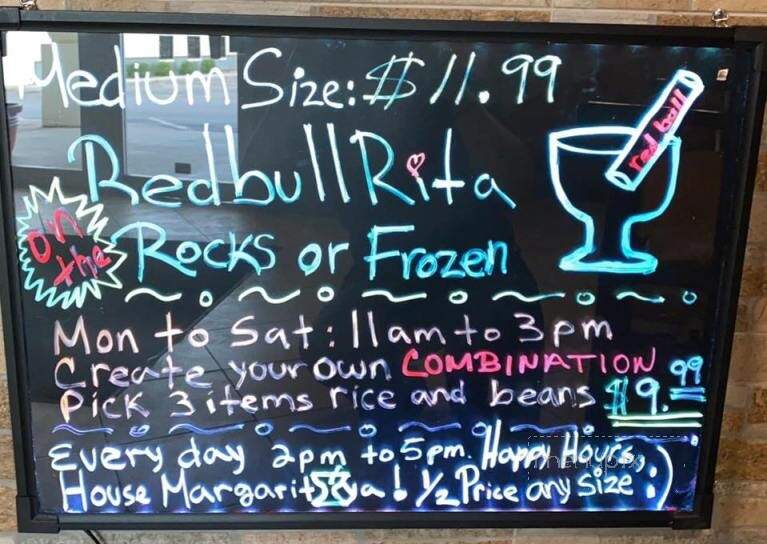 Medium Size: $11.99
Redbull Rita
red bull
on the Rocks or Frozen
Mon to Sat: 11am to 3pm
Create your own COMBINATION
Pick 3 items rice and beans $9.99
Every day 2pm to 5pm. Happy Hours
House Margarita! 1/2 Price any Size :)